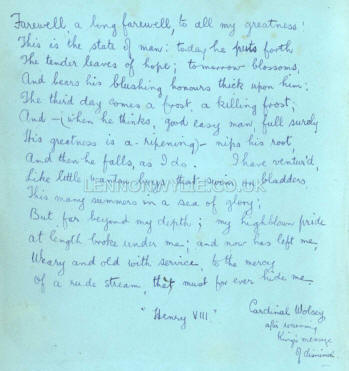 Farewell, a long farewell, to all my greatness!
This is the state of man: today he puts forth
The tender leaves of hope; to-morrow blossoms,
And bears his blushing honours thick upon him:
The third day comes a frost, a killing frost;
And – (when he thinks, good easy man, full surely
His greatness is a-ripening) – nips his root,
And then he falls, as I do. I have ventur'd,
Like little wanton boys that swim on bladders,
LENNONWYLIE.CO.UK
This many summers in a sea of glory;
But far beyond my depth; my highblown pride
at length broke under me; and now has left me,
Weary and old with service, to the mercy
of a rude stream, that must for ever hide me.
"Henry VIII"
Cardinal Wolsey
after receiving
King's message
of dismissal